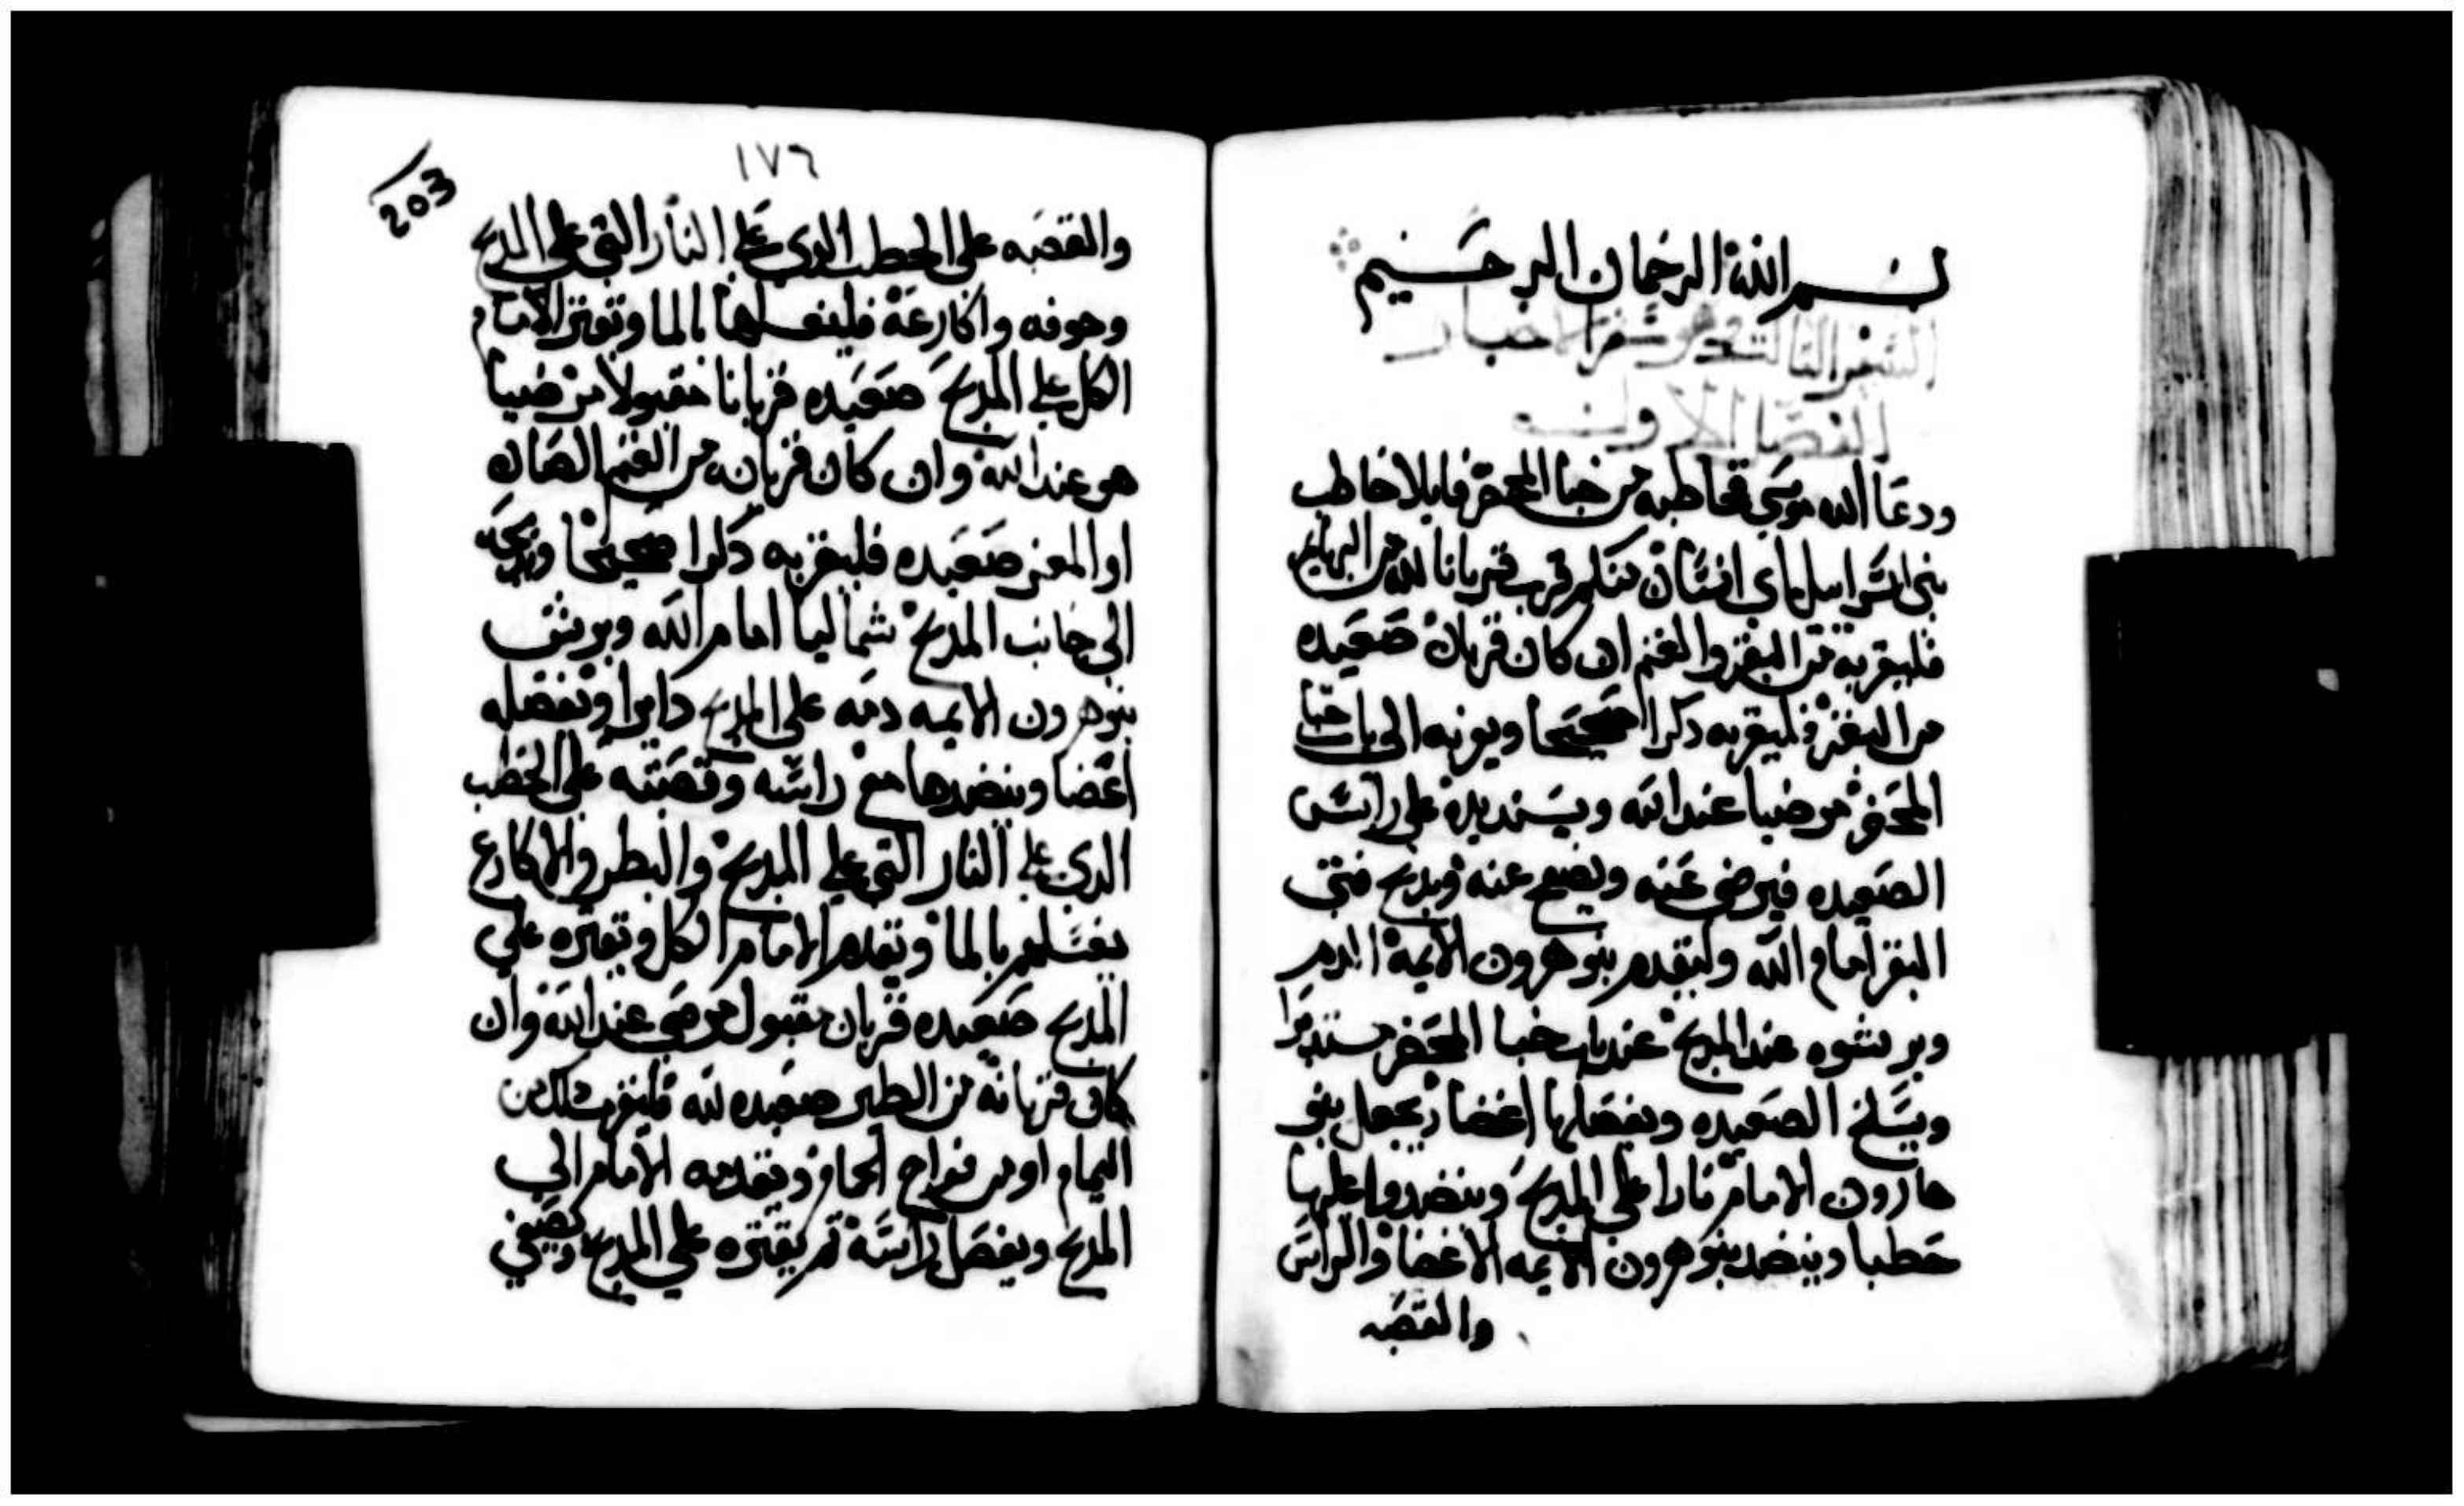 بسم الله الرحمان الرحيم
السفر الثالث وهو سفر الاحبار
الفصل الاول
ودعا الله موسي فخاطبه من خبا المحضر قايلا خاطب
بني اسراييل اي انسان منكم قرب قربانا لله من البهايم
فليقربه من البقر والغنم ان كان قربانه صعيده
من البقر فليقربه دكرا صحيحا ويونه الي باب خبا
المحضر مرضيا عند الله ويسند يده علي راس
الصعيده فيرضي عنه ويصفح عنه ويدبح فتي
البقر امام الله وليقدم بنو هرون الايمه الدم
ويرشوه عند المدبح عند باب خبا المحضر مستديرا
ويسلخ الصعيده ويفصلها اعضا ويجعل بنو
هارون الامام نارا علي المدبح وينضدوا عليها
حطبا وينضد بنو هرون الايمه الاعضا والراس
والقصبه
١٧٦
203
والقصبه علي الحطب الدي علي النار التي علي المدبح
وجوفه واكارعه فليغسلها بالما ويقتر الامام
الكل علي المدبح صعيده قربانا مقبولا مرضيا
هو عند الله وان كان قربانه من الغنم الضان
او المعز صعيده فليقربه دكرا صحيحا ويدبحه
الي جانب المدبح شماليا امام الله ويرش
بنو هرون الايمه دمه علي المدبح دايرا ويفصله
اعضا وينضدها مع راسه وقصبته علي الحطب
الدي علي النار التي علي المدبح والبطن والاكارع
يغسلهم بالما ويقدم الامام الكل ويقتره علي
المدبح صعيده قربان مقبول مرضي عند الله وان
كان قربانه من الطير صعيده لله فليقرب دلك من
اليمام او من فراخ الحمام ويقدمه الامام الي
المدبح ويفصل راسه ثم يقتره علي المدبح ويصفي